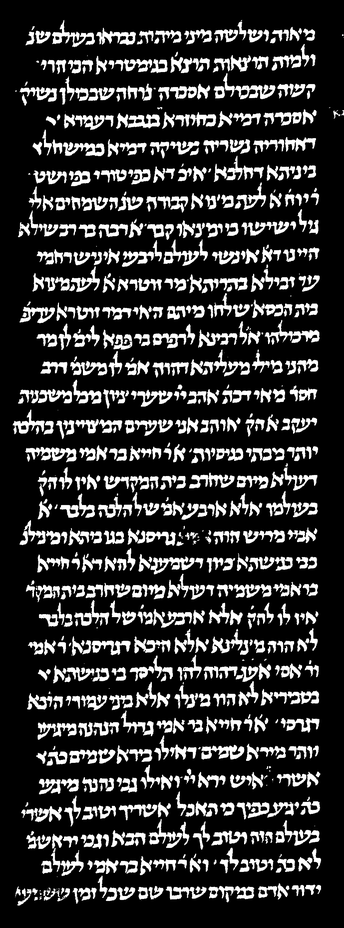 מאות ושלשה מיני מיתות נבראו בעולם שנ'
ולמות תוצאות תוצא' בגימטריא הכי הוי
קשה שבכולם אסכרה ניחה שבכולן נשיק'
אסכרה דמייא כחיזרא בגבבא דעמרא
דאחוריה נשריה נשיקה דמיא כמישחל
ביניתא דחלבא א'יכ' דא כפיטורי בפי ושט
ר' יוח' א' לעת מצוא זו קבורה שנ' השמחים אלי
גיל ישישו כי ימצאו קבר א' רבה בר רב שילא
היינו דא' אינשי לעולם ליבעי איניש רחמי
עד זבילא בתרייתא מר זוטרא א' לעת מצוא
בית הכסא שלחו מיתם האי דמר זוטרא עדיפ'
מכולהו א'ל רבינא לרפרם בר פפא לימ' לן מר
מהני מילי מעליתא דהוה אמ' לן משמ' דרב
חסד' מאי דכת' אהב יי שערי ציון מכל משכנות
יעקב א' הק' אוהב אני שערים המצויינין בהלכה
יותר מבתי כנסיות א'ר חייא בר אמי משמיה
דעולא מיום שחרב בית המקדש אין לו להק'
בעולמו אלא ארבע אמ' של הלכה בלבד א'
אביי מריש הוה גריסנא בגו ביתא ומצלינ'
בבי כנישתא כיון דשמענא להא דא'ר חייא
בר אמי משמיה דעולא מיום שחרב בית המקד'
אין לו להק' אלא ארבע אמ' של הלכה בלבד
לא הוה מצלינא אלא היכא דגריסנא ר' אמי
ור' אסי אע'ג דהוה להו תליסר בי כנישתא
בטבריא לא הוו מצלו אלא ביני עמודי היכא
דגרסי א'ר חייא בר אמי גדול הנהנה מיגיע
יותר מירא שמים דאילו בירא שמים כת'
אשרי איש ירא יי ואילו גבי נהנה מיגיע
כת' יגיע כפיך כי תאכל אשריך וטוב לך אשרי'
בעולם הזה וטוב לך לעולם הבא וגבי ירא שמ'
לא כת' וטוב לך וא'ר חייא בר אמי לעולם
ידור אדם במקום שרבו שם שכל זמן